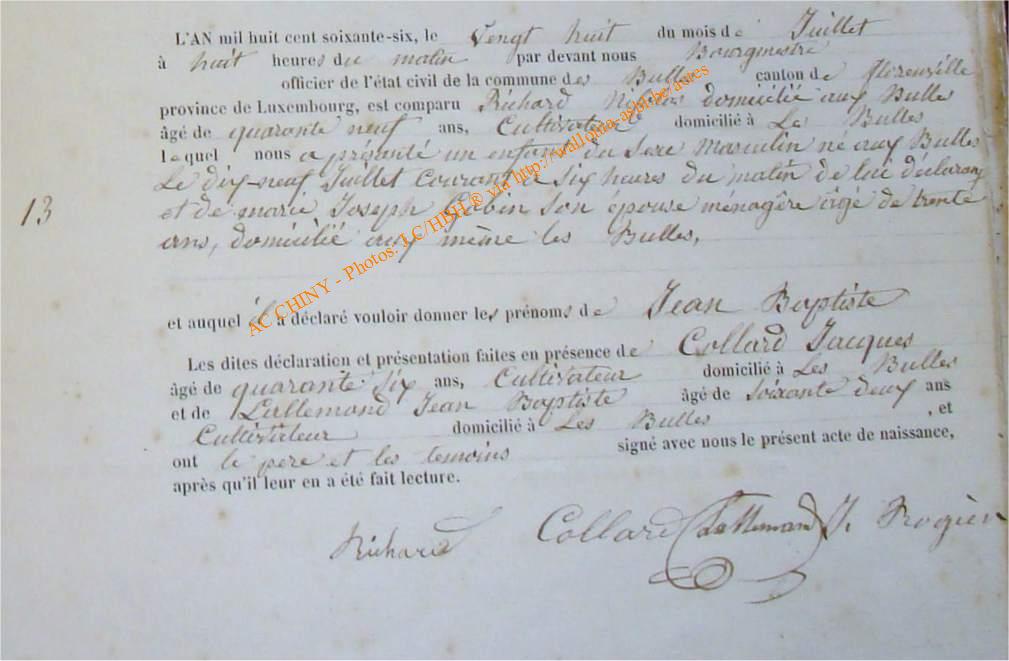 L'AN mil huit cent soixante-six, le Vengt huit du mois de Juillet
à huit heures du matin par devant nous Bourgmestre
officier de l'état civil de la commune des Bulles canton de florenville
province de Luxembourg, est comparu Richard Nicolas domicilié aux Bulles
âgé de quarante neuf ans, Cultivateur domicilié à Les Bulles
lequel nous a présanté un enfant du Sexe Masculin né aux Bulles
Le dix-neuf Juillet Courant à Six heures du matin de lui déclarant
13
et de marie Joseph Gobin Son épouse ménagère âgé de trente
ans, domicilié aux même les Bulles,
et auquel il a déclaré vouloir donner les prénoms de Jean Baptiste
Les dites déclaration et présentation faites en présence de Collard Jacques
âgé de quarante Six ans, Cultivateur domicilié à Les Bulles
et de Lallemand Jean Baptiste âgé de Soixante deux ans
Cultivateur domicilié à Les Bulles , et
ont le père et les temoins signé avec nous le présent acte de naissance,
après qu'il leur en a été fait lecture.
Richard Collard Lallemand J. Rogier
AC CHINY - Photos: LC/HBH ® via http://wallonia-asbl.be/actes